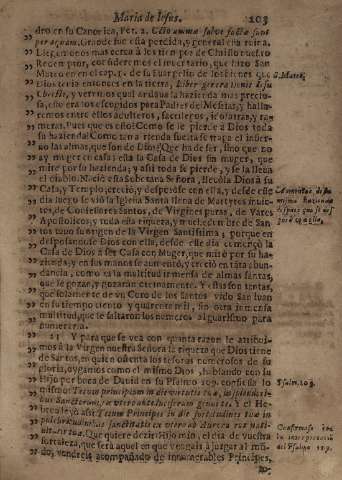 Maria de Iesus. 103
dro en su Canonica, Per. 2. Octo animæ salvæ factæ sunt
per aquam. Grande fue esta perdida, y general esta ruina.
Lleguemonos mas cerca à los tiempos de Christo nuestro
Redemptor, consideremos el inventario, que hizo San
Mateo en el cap. 1. de su Euangelio de los bienes que S. Mateo.
Dios tenia entonces en la tierra, Liber generationis Iesu
Christi, y veremos qual estaua la hazienda mas precio-
sa, esto era los escogidos para Padres del Mesias; y halla-
remos entre ellos adulteros, sacrilegos, idolatras, y ra-
meras. Pues que es esto? Como se le pierde à Dios toda
su hazienda? Como tan a rienda suelta se traga el infierno
las almas, que son de Dios? Que ha de ser, sino que no
ay muger en casa? esta la Casa de Dios sin muger, que
mire por su hazienda; y assi toda se pierde, y se la lleua
el diablo. Naciò esta Soberana Señora, lleuola Dios à su
Casa, y Templo, creciò, y desposòse con ella, y desde esse
dia luego se viò la Iglesia Santa llena de Martyres inuic-
tos, de Confessores Santos, de Virgines puras, de Varones
Apostolicos; y toda esta riqueza, y muchedumbre de San-
tos tuuo su origen de la Virgen Santissima; porque en
desposandose Dios con ella, desde esse dia començò la
Casa de Dios à ser Casa con Muger, que mirò por su ha-
zienda, y en sus manos se aumentò, y creciò en tanta abun-
dancia, como es la multitud inmensa de almas santas,
que le gozan, y gozaràn eternamente. Y estas son tantas,
que solamente de un Coro de los Santos vido San Iuan
en su tiempo ciento y quarenta mil, sin otra inmensa
multitud, que le faltaron los numeros al guarismo para
numerarla.
Y para que se vea con quanta razon le atribui-
mos à la Virgen nuestra Señora la riqueza que Dios tiene
de Santos, en quien ostenta los tesoros numerosos de su
gloria, oygamos como el mismo Dios, hablando con su
Hijo por boca de Dauid en su Psalmo 109. confiessa lo Psalm. 109.
mismo: Tecum principium in die virtutis tuæ, in splendori-
bus Sanctorum, ex utero ante luciferum genui te. Y el He-
breo leyò assi: Tecum Principes in die fortitudinis tuæ in
pulchritudinibus sanctitatis ex utero ab Aurora ros natiui-
tatis tuæ. Que quiere dezir: Hijo mio, el dia de vuestra
fortaleza, que serà aquel en que vengais à juzgar al mun-
do, vendreis acompañado de innumerables Principes,